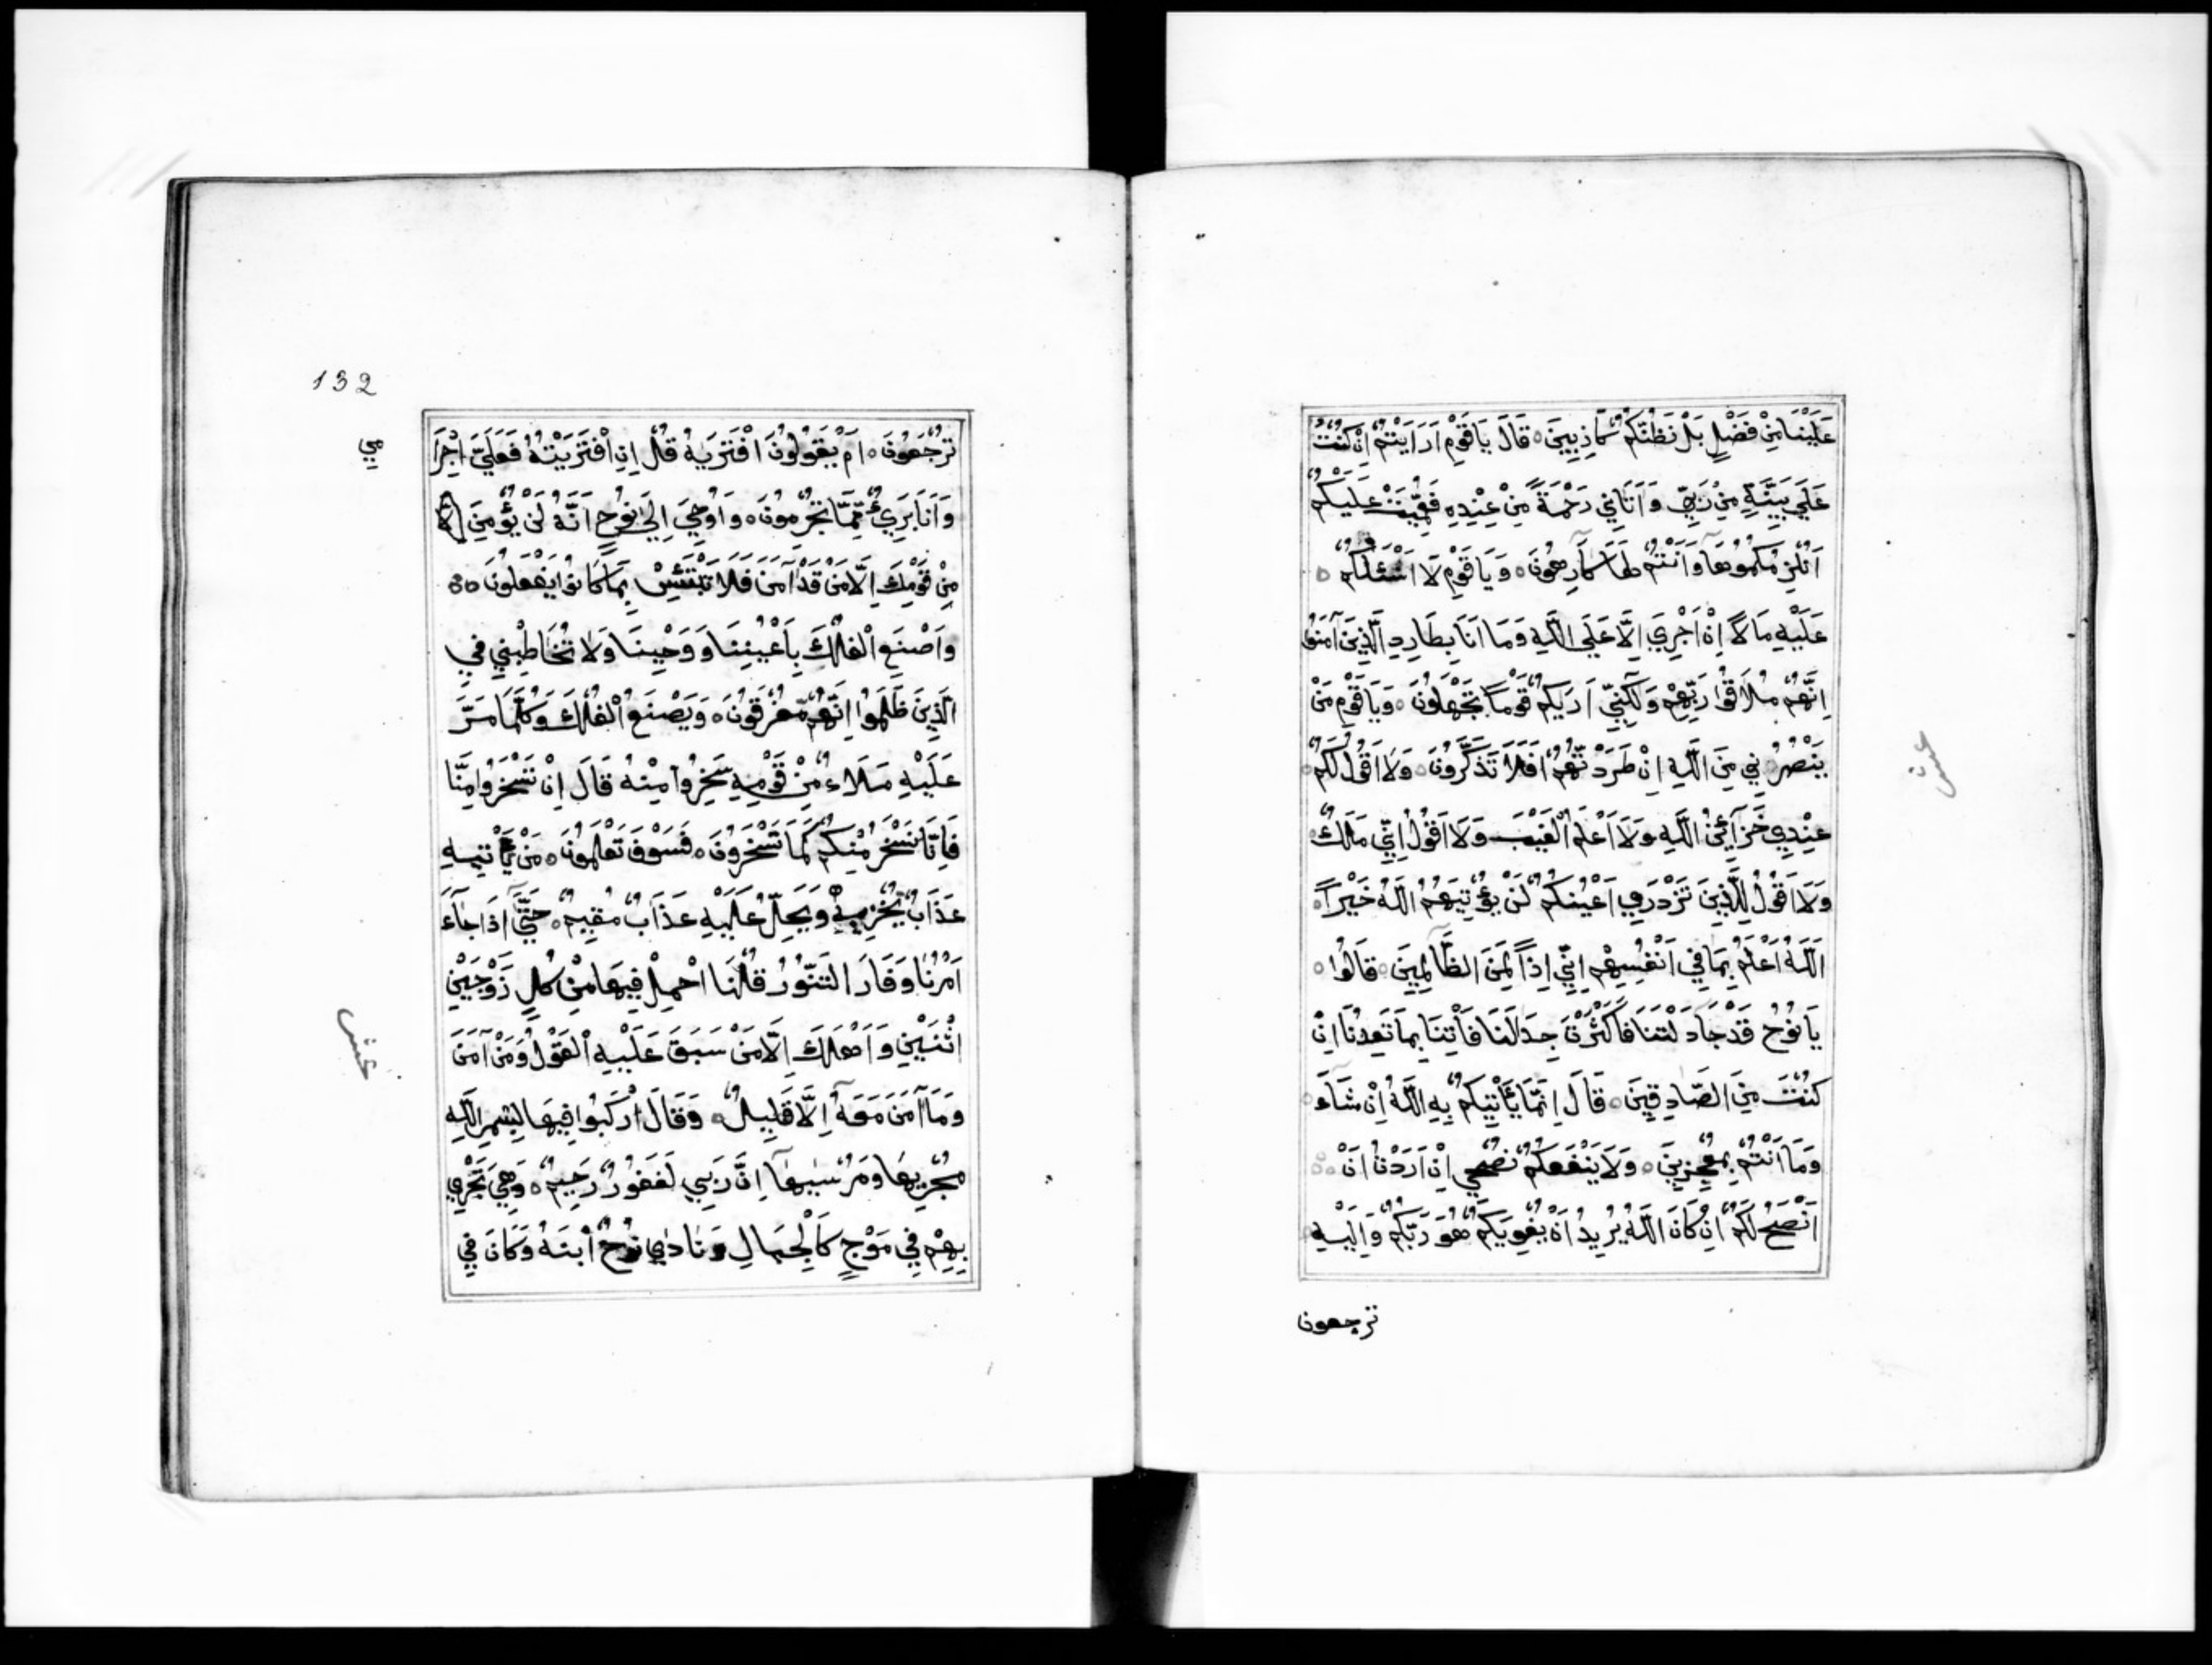 عَلَيْنَا مِنْ فَضْلٍ بَلْ نَظُنُّكُمْ كَاذِبِينَ ٥ قَالَ يَا قَوْمِ اَرَاَيْتُمْ اِنْ كُنْتُ
عَلَي بَيِّنَةٍ مِنْ رَبِّي وَاَتَانِي رَحْمَةً مِنْ عِنْدِهِ فَعُمِّيَتْ عَلَيْكُمْ
اَنُلْزِمُكُمُوهَا وَاَنْتُمْ لَهَا كَارِهُونَ ٥ وَيَا قَوْمِ لَا اَسْئَلُكُمْ ٥
عَلَيْهِ مَالًا اِنْ اَجْرِيَ اِلَّا عَلَي اللَّهِ وَمَا اَنَا بِطَارِدِ الَّذِينَ آمَنُوا
اِنَّهُمْ مُلَاقُوا رَبِّهِمْ وَلَكِنِّي اَرَيكُمْ قَوْمًا تَجْهَلُونَ ٥ وَيَا قَوْمِ مَنْ
يَنْصُرُنِي مِنَ اللَّهِ اِنْ طَرَدْتُهُمْ اَفَلَا تَذَكَّرُونَ ٥ وَلَا اَقُولُ لَكُمْ
عِنْدِي خَزَآئِنُ اللَّهِ وَلَا اَعْلَمُ الْغَيْبَ وَلَا اَقُولُ اِنِّي مَلَكٌ
وَلَا اَقُولُ لِلَّذِينَ تَزْدَرِي اَعْيُنُكُمْ لَنْ يُؤْتِيَهُمُ اللَّهُ خَيْرًا ٥
اَللَّهُ اَعْلَمُ بِمَا فِي اَنْفُسِهِمْ اِنِّي اِذًا لَمِنَ الظَّالِمِينَ ٥ قَالُوا ٥
يَا نُوحُ قَدْ جَادَلْتَنَا فَاَكْثَرْتَ جِدَالَنَا فَأْتِنَا بِمَا تَعِدُنَا اِنْ
كُنْتَ مِنَ الصَّادِقِينَ ٥ قَالَ اِنَّمَا يَأْتِيكُمْ بِهِ اللَّهُ اِنْ شَآءَ
وَمَا اَنْتُمْ بِمُعْجِزِينَ ٥ وَلَا يَنْفَعُكُمْ نُصْحِي اِنْ اَرَدْتُ اَنْ
اَنْصَحَ لَكُمْ اِنْ كَانَ اللَّهُ يُرِيدُ اَنْ يُغْوِيَكُمْ هُوَ رَبُّكُمْ وَاِلَيْهِ
ترجعون
عشر
132
تُرْجَعُونَ ٥ اَمْ يَقُولُونَ افْتَرَيهُ قُلْ اِنِ افْتَرَيْتُهُ فَعَلَيَّ اِجْرَا
وَاَنَا بَرِيءٌ مِمَّا تُجْرِمُونَ ٥ وَاُوحِيَ اِلَي نُوحٍ اَنَّهُ لَنْ يُؤْمِنَ
مِنْ قَوْمِكَ اِلَّا مَنْ قَدْ آمَنَ فَلَا تَبْتَئِسْ بِمَا كَانُوا يَفْعَلُونَ ٥
وَاصْنَعِ الْفُلْكَ بِاَعْيُنِنَا وَوَحْيِنَا وَلَا تُخَاطِبْنِي فِي
الَّذِينَ ظَلَمُوا اِنَّهُمْ مُغْرَقُونَ ٥ وَيَصْنَعُ الْفُلْكَ وَكُلَّمَا مَرَّ
عَلَيْهِ مَلَاءٌ مِنْ قَوْمِهِ سَخِرُوا مِنْهُ قَالَ اِنْ تَسْخَرُوا مِنَّا
فَاِنَّا نَسْخَرُ مِنْكُمْ كَمَا تَسْخَرُونَ ٥ فَسَوْفَ تَعْلَمُونَ ٥ مَنْ يَأْتِيهِ
عَذَابٌ يُخْزِيهِ وَيَحِلُّ عَلَيْهِ عَذَابٌ مُقِيمٌ ٥ حَتَّي اِذَا جَآءَ
اَمْرُنَا وَفَارَ التَّنُّورُ قُلْنَا احْمِلْ فِيهَا مِنْ كُلٍ زَوْجَيْنِ
اثْنَيْنِ وَاَهْلَكَ اِلَّا مَنْ سَبَقَ عَلَيْهِ الْقَوْلُ وَمَنْ آمَنَ
وَمَا آمَنَ مَعَهُ اِلَّا قَلِيلٌ ٥ وَقَالَ ارْكَبُوا فِيهَا بِسْمِ اللَّهِ
مَجْرِيهَا وَمُرْسَيهَا اِنَّ رَبِّي لَغَفُورٌ رَحِيمٌ ٥ وَهِيَ تَجْرِي
بِهِمْ فِي مَوْجٍ كَالْجِبَالِ وَنَادَي نُوحٌ ابْنَهُ وَكَانَ فِي